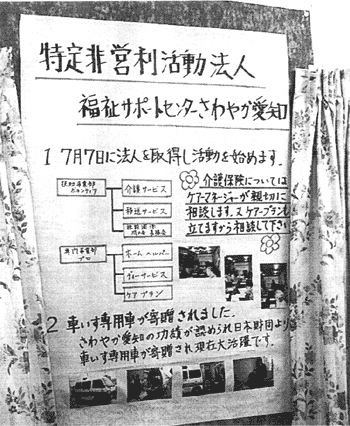 特定非営利活動法人
福祉サポートセンターさわやか愛知
1 7月7日に法人を取得し活動を始めます。
ボランティア
介護サービス
移送サービス
ホームヘルパー
デイサービス
ケアプラン
介護保険については
ケアマネージャーが親切に
相談します。又ケアープランも
立てますから相談して下さい
2 車いす専用車が寄贈されました。
さわやか愛知の功績が認められ日本財団より
車いす専用車が寄贈され現在大活躍です。